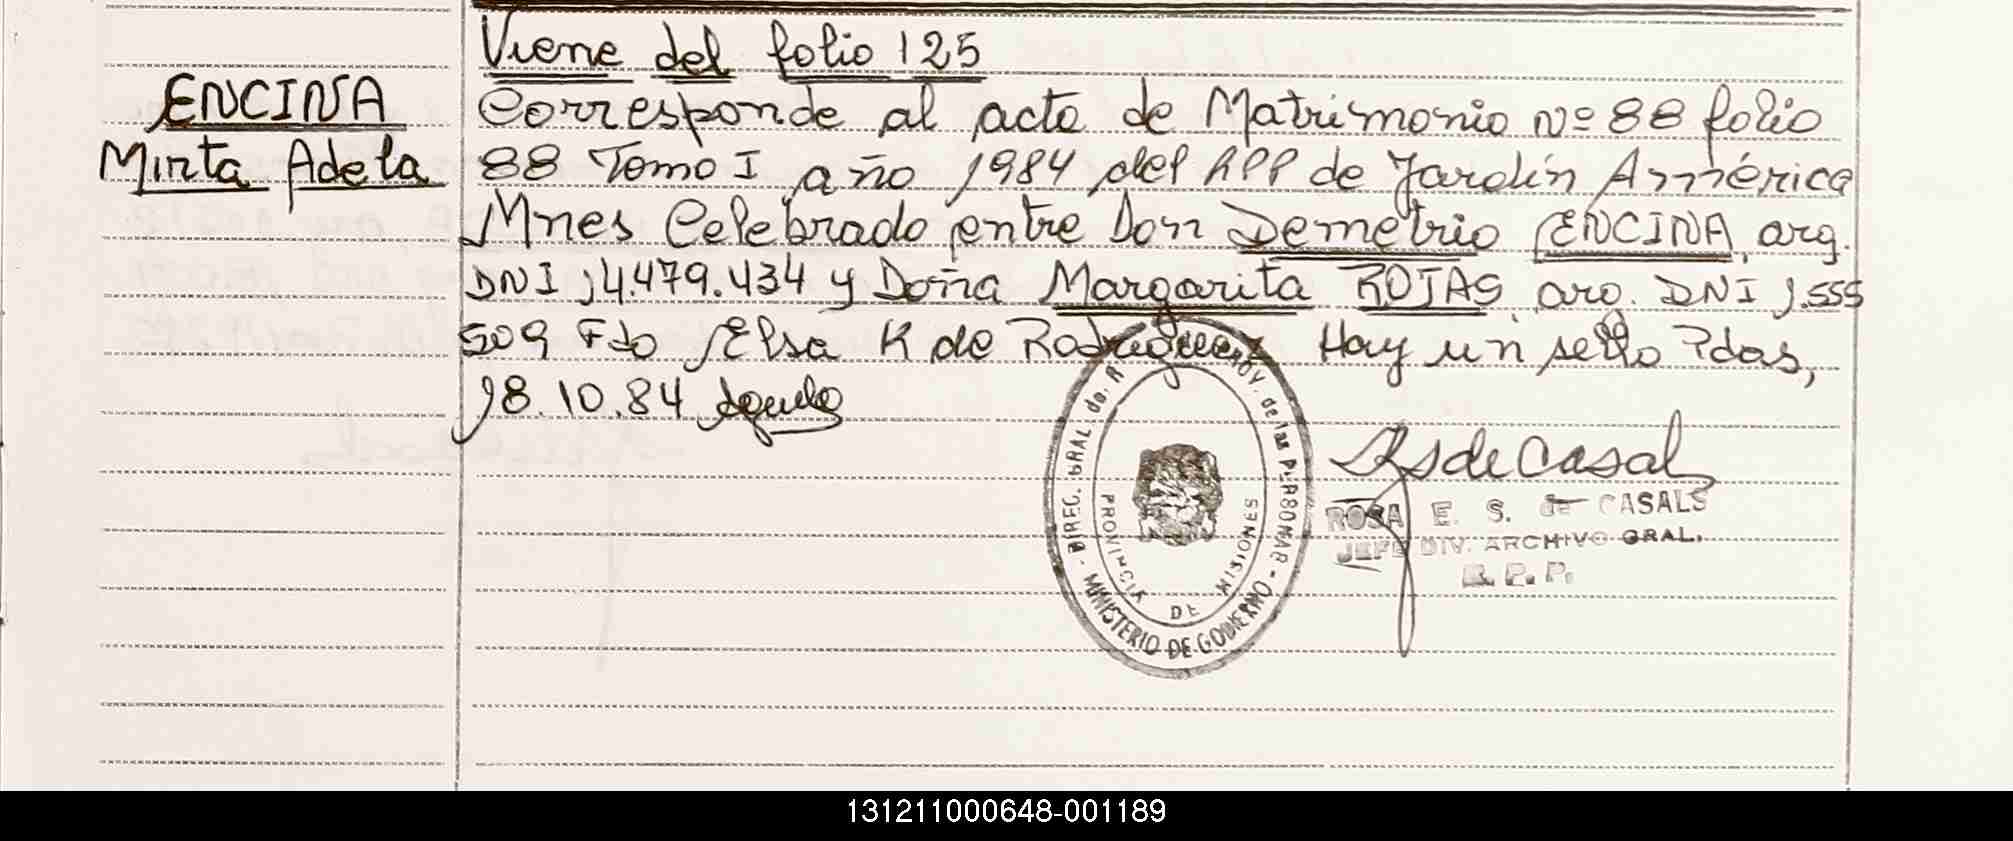 Viene del folio 125
ENCINA
Mirta Adela
Corresponde al acta de Matrimonio Nº 88 folio
88 Tomo I año 1984 del RPP de Jardín América
Mnes Celebrado entre Don Demetrio ENCINA, arg.
DNI 14.479.434 y Doña Margarita ROJAS arg. DNI 1.555
509 Fdo Elsa K de Rodriguez Hay un sello Pdas,
18.10.84
Rs de Casal
DIREC. GRAL. de. R PROV. de las PERSONAS
PROVINCIA DE MISIONES
MINISTERIO DE GOBIERNO
ROSA E. S. de CASALS
JEFE DIV. ARCHIVO GRAL.
R. P. P.
131211000648-001189